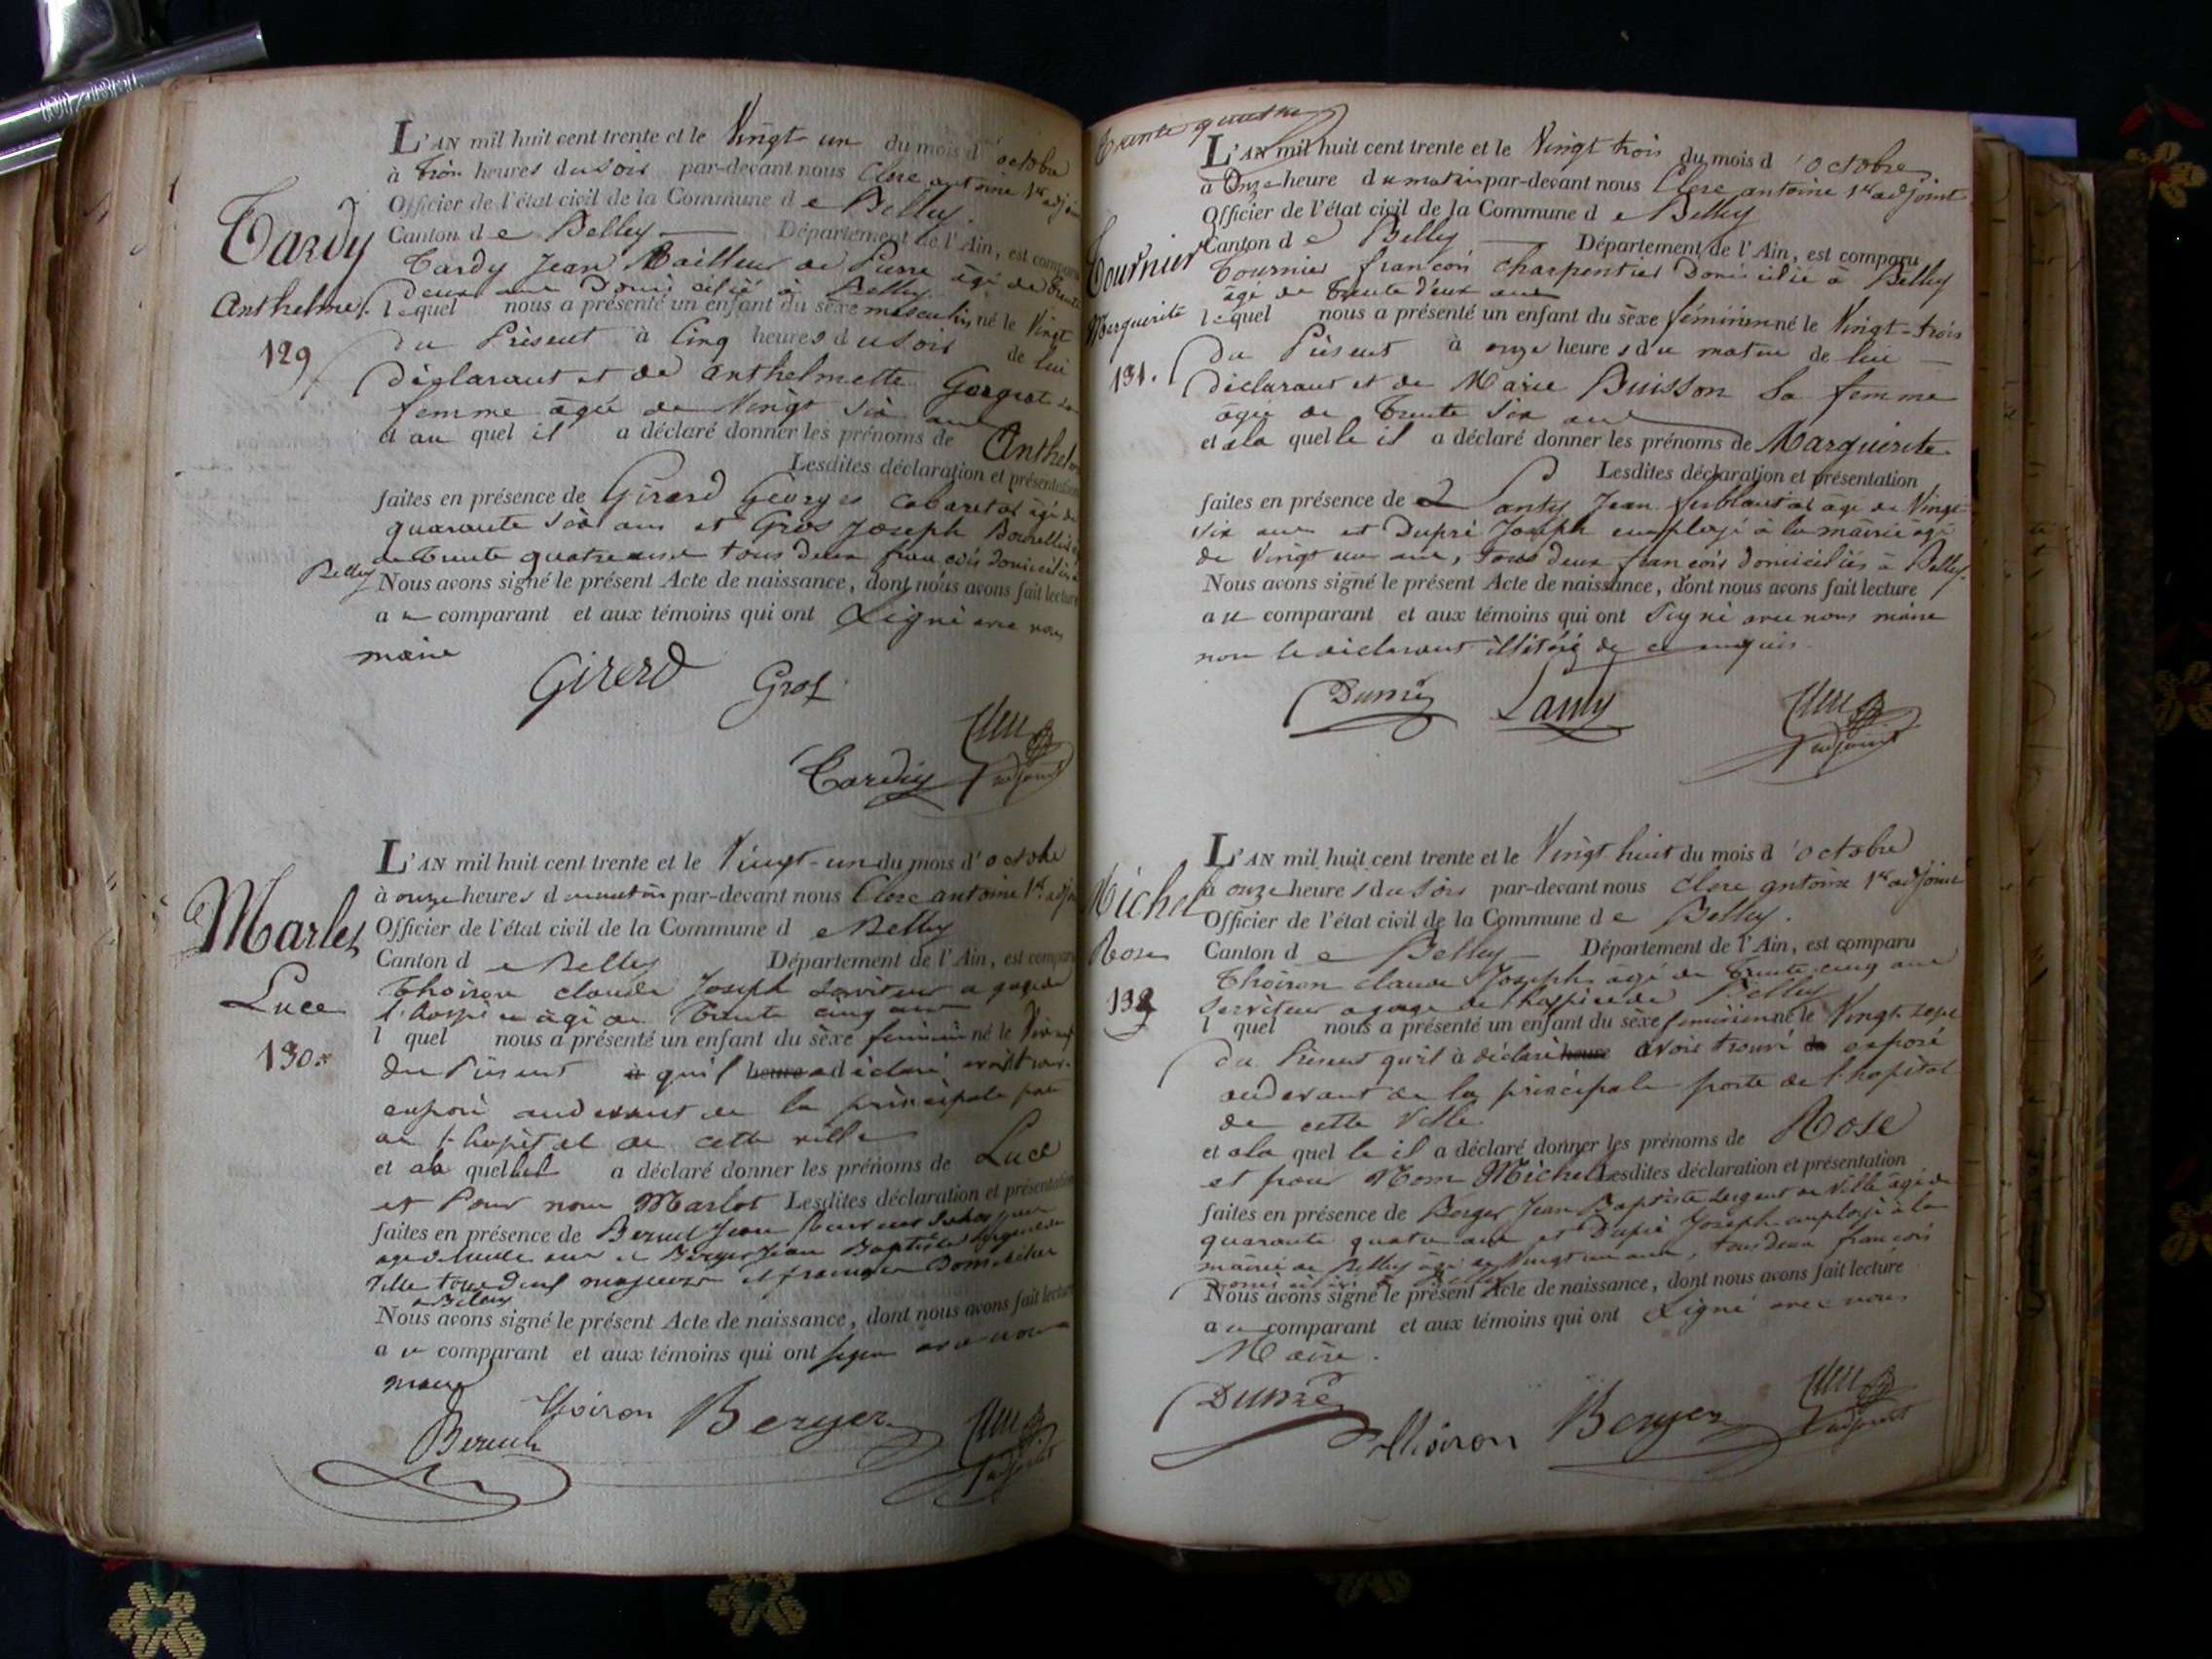 L'AN mil huit cent trente et le Vingt un du mois d'octobre
à trois heures du soir par-devant nous Clerc antoine 1er adjoint
Officier de l'état civil de la Commune de Belley
Tardy
Canton de Belley Département de l'Ain, est comparu
Tardy Jean Tailleur de Pierre âgé de trente
deux ans Domicilié à Belley
Anthelme
lequel nous a présenté un enfant du sèxe masculin né le Vingt
129
du Présent à Cinq heures du soir de lui
déclarant et de anthelmette sa
femme âgée de Vingt six ans
et au quel il a déclaré donner les prénoms de Anthelme
Lesdites déclaration et présentation
faites en présence de Girard Georges Cabaretier âgé de
quarante six ans et Gros Joseph Bourrelier âgé
de trente quatre ans tous deux françois domiciliés à
Belley
Nous avons signé le présent Acte de naissance, dont nous avons fait lecture
au comparant et aux témoins qui ont signé avec nous
maire
Girerd Gros
Clerc
Tardy adjoint
L'AN mil huit cent trente et le Vingt-un du mois d'octobre
à onze heures du matin par-devant nous Clerc antoine 1er adjoint
Marlet
Officier de l'état civil de la Commune de Belley
Canton de Belley Département de l'Ain, est comparu
Luce
Thoiron claude Joseph serviteur a gage de
l'hospice âgé de trente cinq ans
130.
l quel nous a présenté un enfant du sèxe feminin né le Vingt
du Présent à qu'il heure a déclaré avoir trouvé
exposé audevant de la principale porte
de l'hopital de cette ville
et a la quelle il a déclaré donner les prénoms de Luce
et Pour nom Marlot Lesdites déclaration et présentation
faites en présence de Jean
et Berger Jean Baptiste Sergent de
Ville tous deux majeurs et français Domiciliés
a Belley
Nous avons signé le présent Acte de naissance, dont nous avons fait lecture
au comparant et aux témoins qui ont signé avec nous
maire
Thoiron Berger Clerc
adjoint
trente quatre
L'AN mil huit cent trente et le Vingt trois du mois d'octobre
à Onze heure du matin par-devant nous Clerc antoine 1er adjoint
Officier de l'état civil de la Commune de Belley
Tournier
Canton de Belley Département de l'Ain, est comparu
Tournier françois charpentier Domicilié à Belley
âgé de trente deux ans
Marguerite
lequel nous a présenté un enfant du sèxe féminin né le Vingt-trois
131.
du Présent à onze heures du matin de lui
déclarant et de Marie Buisson sa femme
âgée de trente six ans
et a la quelle il a déclaré donner les prénoms de Marguerite
Lesdites déclaration et présentation
faites en présence de Lanty Jean ferblantier âgé de Vingt
six ans et Dupré Joseph employé à la mairie âgé
de Vingt un ans, tous deux françois domiciliés à Belley.
Nous avons signé le présent Acte de naissance, dont nous avons fait lecture
au comparant et aux témoins qui ont signé avec nous maire
non le déclarant illitéré de ce enquis.
Dupré Lanty Clerc
adjoint
L'AN mil huit cent trente et le Vingt huit du mois d'octobre
à onze heures du soir par-devant nous Clerc antoine 1er adjoint
Michel
Officier de l'état civil de la Commune de Belley.
Rose
Canton de Belley Département de l'Ain, est comparu
Thoiron claude Joseph âgé de trente cinq ans
132
serviteur a gage de l'hospice de Belley
l quel nous a présenté un enfant du sèxe féminin né le Vingt-sept
du Présent qu'il à déclaré heure avoir trouvé exposé
audevant de la principale porte de l'hopital
de cette Ville
et a la quelle il a déclaré donner les prénoms de Rose
et pour Nom Michel Lesdites déclaration et présentation
faites en présence de Berger Jean Baptiste Sergent de Ville âgé de
quarante quatre ans et Dupré Joseph employé à la
mairie de Belley âgé de Vingt un ans, tous deux françois
domiciliés à Belley
Nous avons signé le présent Acte de naissance, dont nous avons fait lecture
au comparant et aux témoins qui ont signé avec nous
Maire.
Dupré Thoiron Berger Clerc
adjoint